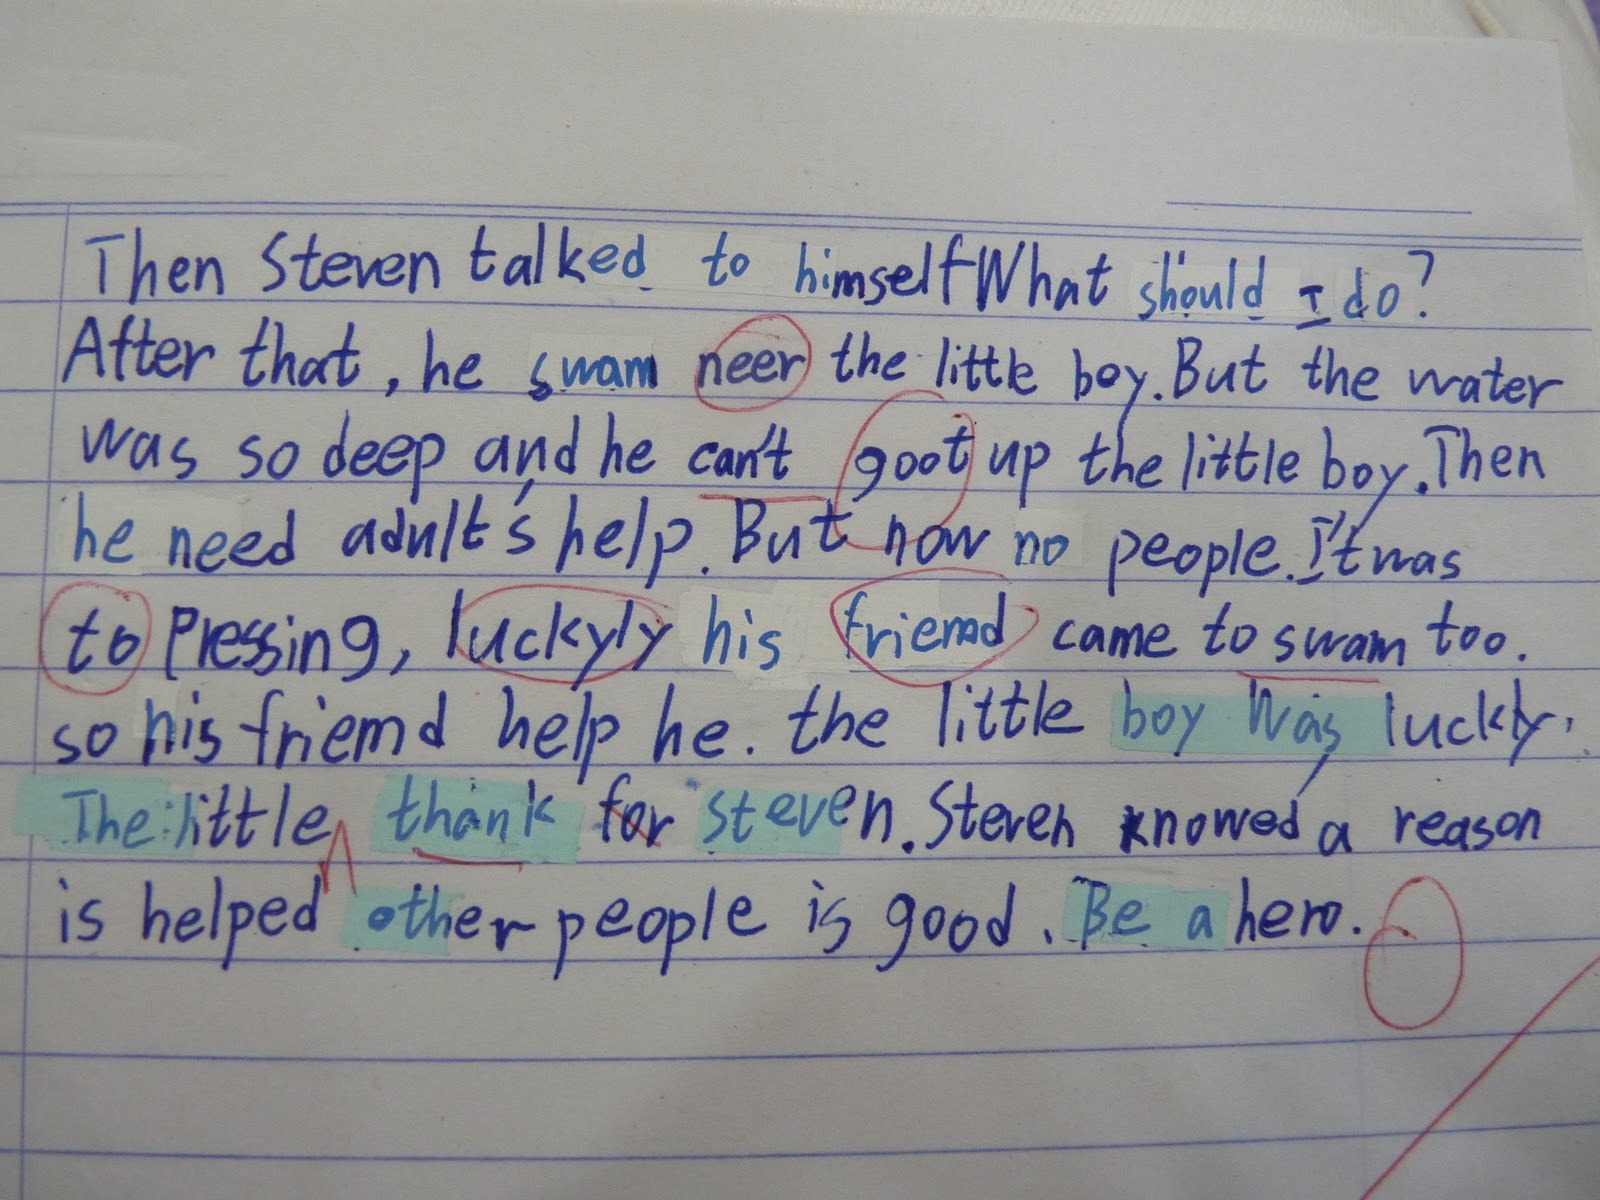 Then Steven talked to himself What should I do?
After that, he swam neer the little boy. But the water
was so deep and he can't goot up the little boy. Then
he need adult's help. But now no people. It was
to pressing, luckyly his friemd came to swam too.
so his friemd help he. the little boy was luckly.
The little thank for steven. Steven knowed a reason
is helped other people is good. Be a hero.